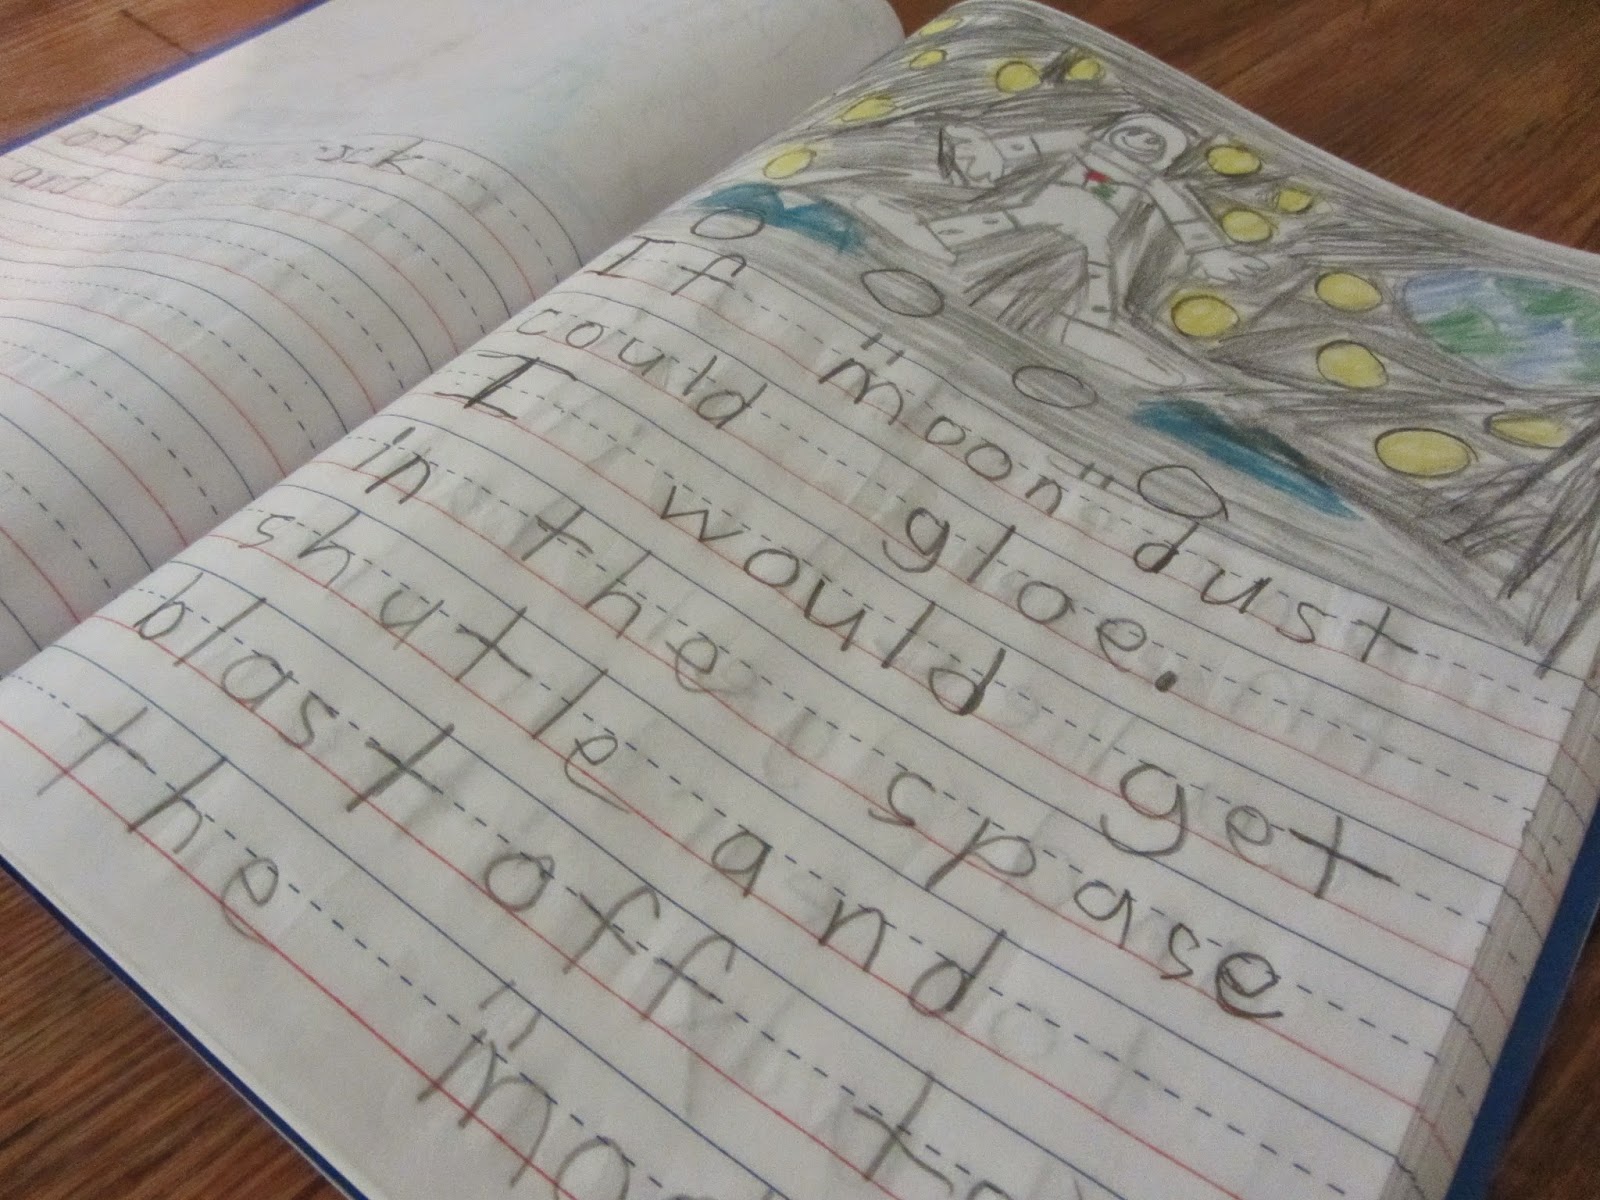 and the
and
If "moon" dust
could gloe.
I would get
in the spase
shutle and
blast off to
the "moo